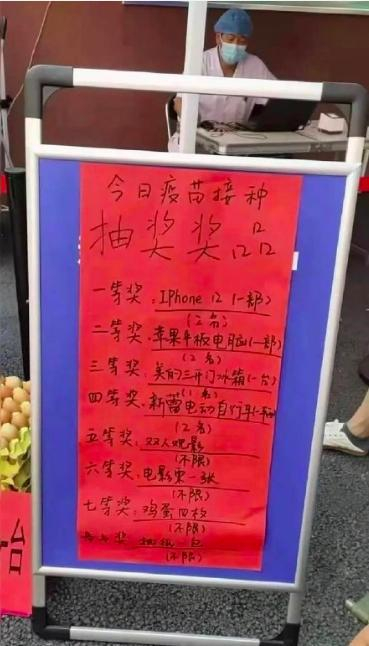 今日疫苗接种
抽奖奖品
一等奖：IPhone 12 (一部)
二等奖：苹果平板电脑(一部)
(2名)
三等奖：美的三开门冰箱(一台)
(1名)
四等奖：新蕾电动自行车
(2名)
五等奖：双人观影
(不限)
六等奖：电影票一张
(不限)
七等奖：鸡蛋四枚
(不限)
奖：抽纸一包
(不限)
台